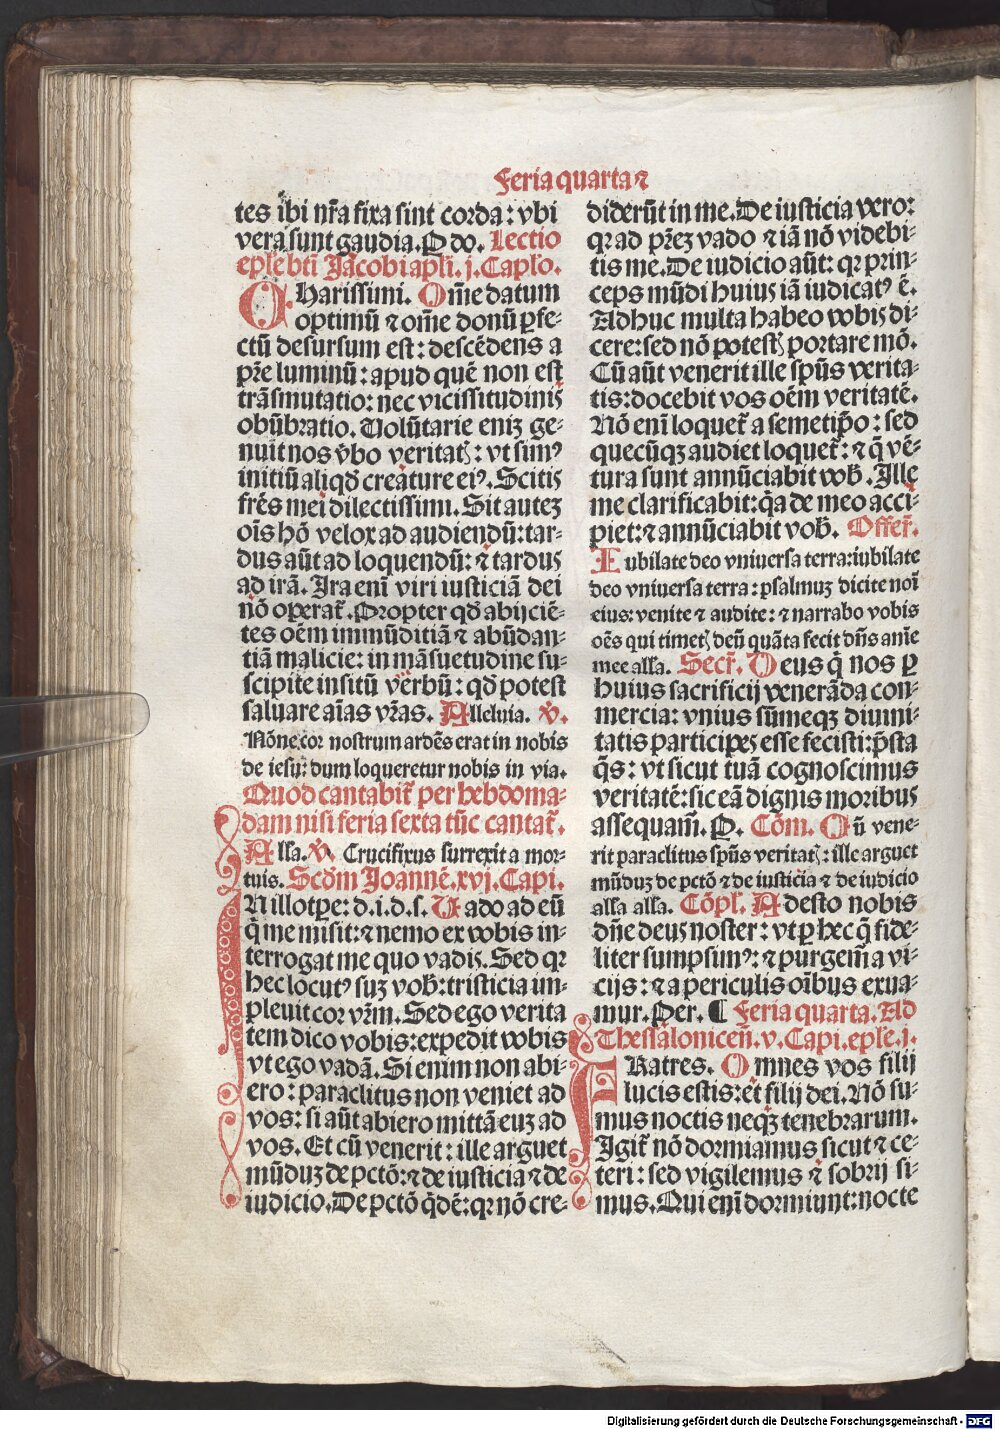 Feria quarta ⁊
tes ibi nr̃a fixa sint corda: vbi
vera sunt gaudia. P do. Lectio
ep̃le bt̃i Jacobi apl̃i. j. Capl̃o.
CHarissimi. Om̃e datum
optimũ ⁊ om̃e donũ ꝑfe-
ctũ desursum est: descẽdens a
pr̃e luminũ: apud quẽ non est
trãsmutatio: nec vicissitudinis
obũbratio. Volũtarie eniꝫ ge-
nuit nos ṽbo veritatꝭ: vt simꝰ
initiũ aliqd̃ creature eiꝰ. Scitis
fr̃es mei dilectissimi. Sit auteꝫ
oĩs hõ velox ad audiendũ: tar-
dus aũt ad loquendũ: ⁊ tardus
ad irã. Ira eni᷈ viri iusticiã dei
nõ operat᷈. Propter qd̃ abijciẽ-
tes oẽm immũditiã ⁊ abũdan-
tiã malicie: in mãsuetudine su-
scipite insitũ verbũ: qd̃ potest
saluare aĩas vr̃as. Alleluia. ℣.
Nõne cor nostrum ardẽs erat in nobis
de iesu: dum loqueretur nobis in via.
Quod cantabit᷈ per hebdoma-
dam nisi feria sexta tũc cantat᷈.
Alla. ℣. Crucifixus surrexit a mor-
tuis. Scd̃m Joannẽ. xvj. Capi.
IN illo tp̃e: d. i. d. s. Vado ad eũ
q̃ me misit: ⁊ nemo ex vobis in-
terrogat me quo vadis. Sed qꝛ
hec locutꝰ suꝫ vob̃: tristicia im-
pleuit cor vr̃m. Sed ego verita
tem dico vobis: expedit vobis
vt ego vadã. Si enim non abi-
ero: paraclitus non veniet ad
vos: si aũt abiero mittã euꝫ ad
vos. Et cũ venerit: ille arguet
mũduꝫ de pctõ: ⁊ de iusticia ⁊ de
iudicio. De pctõ q̃dẽ: qꝛ nõ cre-
diderũt in me. De iusticia vero:
qꝛ ad pr̃eꝫ vado ⁊ iã nõ videbi-
tis me. De iudicio aũt: qꝛ prin-
ceps mũdi huius iã iudicatꝰ ẽ.
Adhuc multa habeo vobis di-
cere: sed nõ potestꝭ portare mõ.
Cũ aũt venerit ille sp̃us verita-
tis: docebit vos oẽm veritatẽ.
Nõ eni᷈ loquet᷈ a semetip̃o: sed
quecũqꝫ audiet loquet᷈: ⁊ q̃ vẽ-
tura sunt annũciabit vob̃. Ille
me clarificabit: q̃a de meo acci-
piet: ⁊ annũciabit vob̃. Offer᷈.
Iubilate deo vniuersa terra: iubilate
deo vniuersa terra: psalmuꝫ dicite noĩ
eius: venite ⁊ audite: ⁊ narrabo vobis
oẽs qui timetꝭ deũ quãta fecit dñs anĩe
mee alla. Secr᷈. Deus q̃ nos ꝑ
huius sacrificij venerãda com-
mercia: vnius sũmeqꝫ diuini-
tatis participes esse fecisti: p̃sta
q̃s: vt sicut tuã cognoscimus
veritatẽ: sic eã dignis moribus
assequam̃. P. Cõm. Cũ vene-
rit paraclitus sp̃us veritatꝭ: ille arguet
mũduꝫ de pctõ ⁊ de iusticia ⁊ de iudicio
alla alla. Cõpl᷈. Adesto nobis
dñe deus noster: vt ꝑ hec q̃ fide-
liter sumpsimꝰ: ⁊ purgem̃a vi-
cijs: ⁊ a periculis oĩbus exua-
mur. Per. ¶ Feria quarta. Ad
Thessalonicen̄. v. Capi. ep̃le. j.
FRatres. Omnes vos filij
lucis estis: et filij dei. Nõ su-
mus noctis neqꝫ tenebrarum.
Igit᷈ nõ dormiamus sicut ⁊ ce-
teri: sed vigilemus ⁊ sobrij si-
mus. Qui eni᷈ dormiunt: nocte
Digitalisierung gefördert durch die Deutsche Forschungsgemeinschaft - DFG